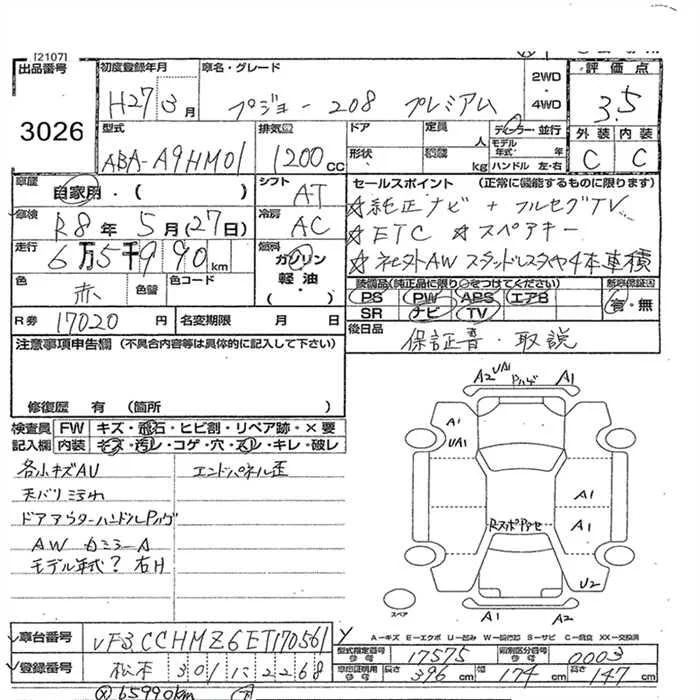 [2107]
出品番号
3026
初度登録年月
H27 3月
車名・グレード
プジョー 208 プレミアム
2WD
・
4WD
評価点
3.5
外装 内装
C C
型式
ABA-A9HM01
排気量
1200cc
ドア
形状
定員
人
積載
kg
ディーラー・並行
モデル年式 年
ハンドル 左・右
車歴
自家用・( )
車検
R8年 5月(27日)
走行
6万5千990km
色
赤
色替
色コード
シフト
AT
冷房
AC
燃料
ガソリン
軽・油
( )
R券 17020円
名変期限 月 日
セールスポイント (正常に機能するものに限ります)
☆純正ナビ + フルセグTV
☆ETC ☆スペアキー
☆社外AW スタッドレスタイヤ4本車積
装備品(純正品に限り○をつけてください)
PS PW ABS エアB
SR ナビ TV
新車保証書
有・無
後日品
保証書・取説
注意事項申告欄 (不具合内容等は具体的に記入して下さい)
修復歴 有 (箇所 )
検査員記入欄
FW キズ・飛石・ヒビ割・リペア跡・×要
内装 キズ・汚レ・コゲ・穴・スレ・キレ・破レ
各小キズAU
エンドパネル歪
天バリ汚れ
ドアアウターハンドルPハゲ
AW カミラーA
モデル年代? 右H
A2 UA1 Pハゲ A1
A1
UA1
A1
A1
U2
A1 A2
スペア
A-キズ E-エクボ U-凹み W-補修跡 S-サビ C-腐食 XX-交換済
車台番号 VF3CCHMZ6ET170561
登録番号 松本 301 に 2268
型式指定番号 参考 17575
類別区分番号 参考 0003
車庫証明用 参考 長さ 396cm 幅 174cm 高さ 147cm
65990km